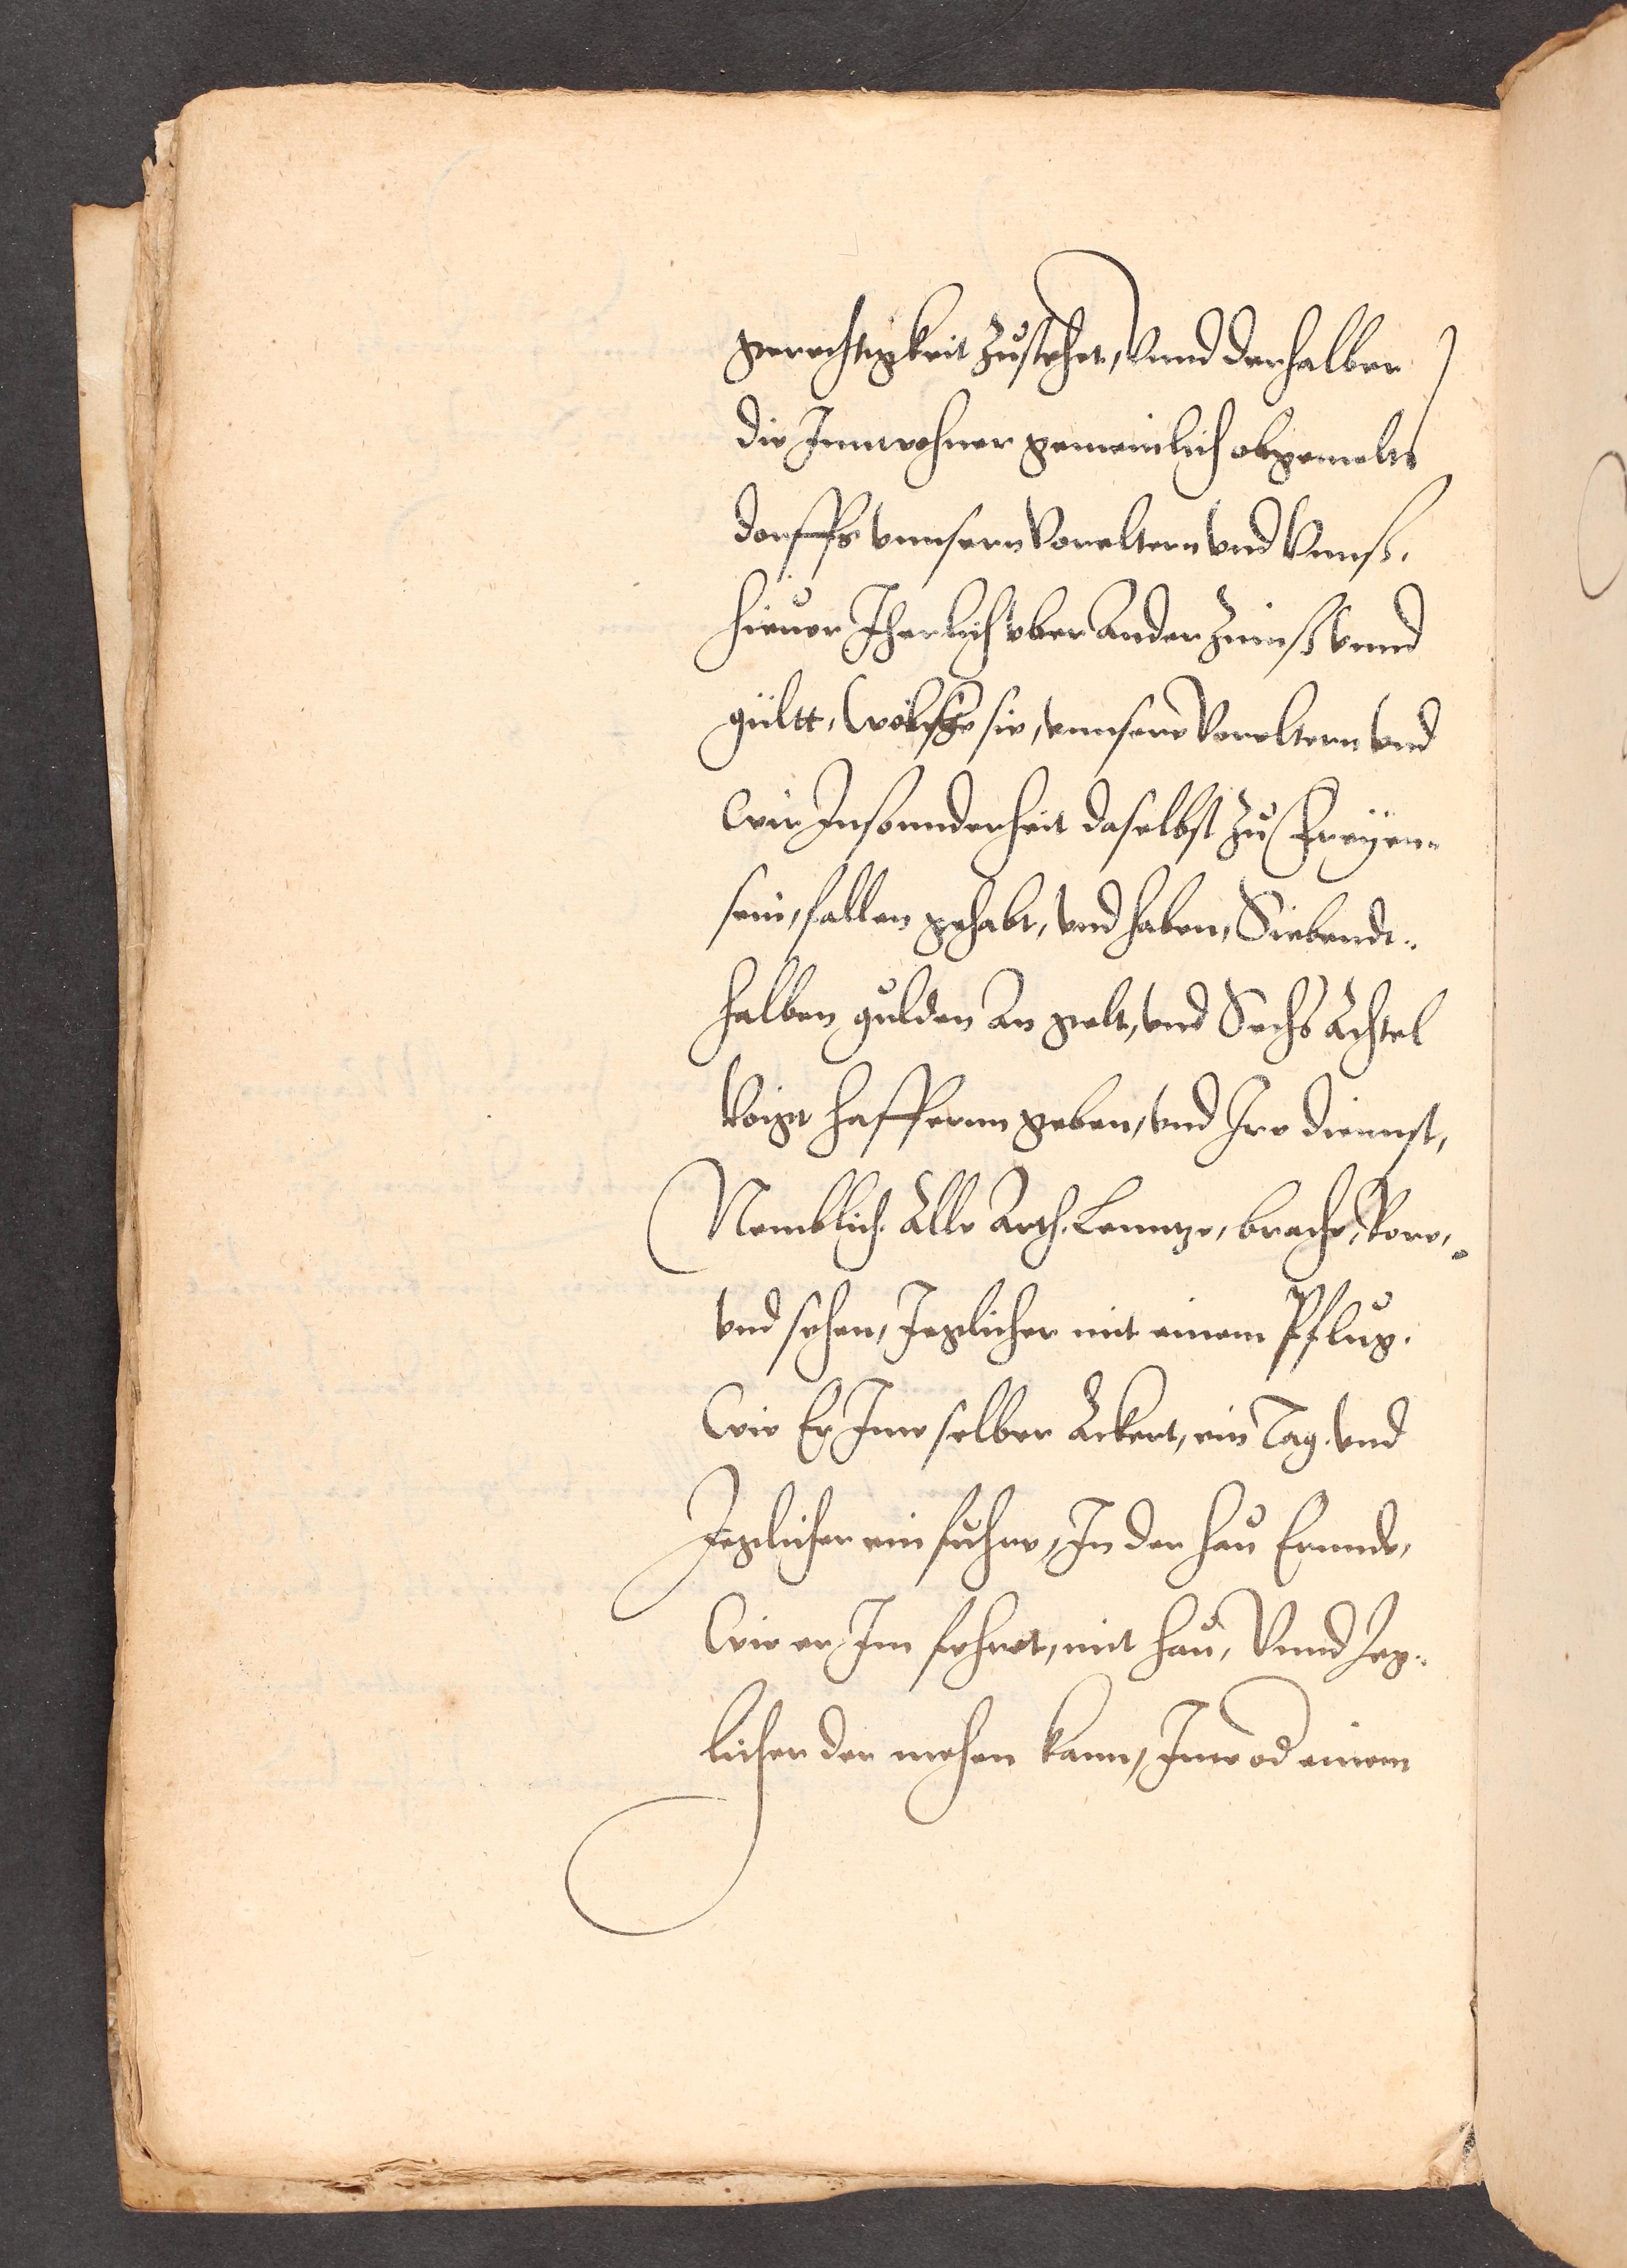 gerechtigkeit Zustehet, Vnnd derhalben
die Innwohner gemeinlich obgemelts
dorffs vnnsern Voreltern vnd Vnnß.
hieuor Jherlich vber Ander Zinnß vnnd
gültt, Wölche sie, vnnsere Voreltern vnd
Wir Insonnderheit daselbst zu Freyen-
sein, fallen gehabt, vnd haben, Siebendt-
halben gulden An gelt, vnd Sechs Achtel
Voigt haffernn geben, vnd Ire diennst,
Nemblich Alle Arth. Lenntze, brache, Vore,
vnd sehen, Jeglicher mit einem Pflug.
Wie Er Ime selber Ackert, ein Tag. vnd
Jeglicher ein fuhre, In der hau Ernnde,
Wie er Im fehret, mit hau, Vnnd Jeg-
licher der mehen kann, Inwod einem